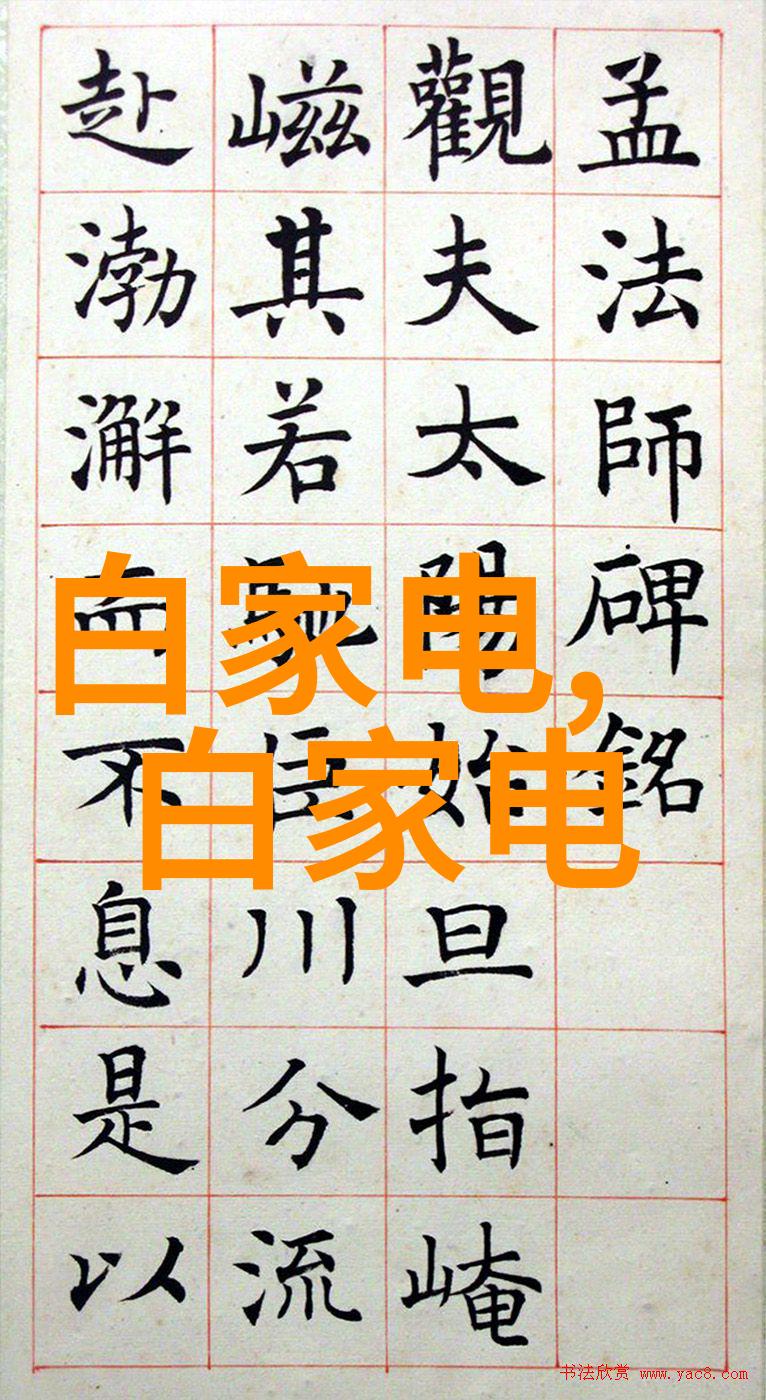 孟法師碑銘
觀夫太陽始旦指崦
嵫其若馳川分流
赴渤澥而不息是以
白家电,
白家电
书法欣赏 www.yac8.com